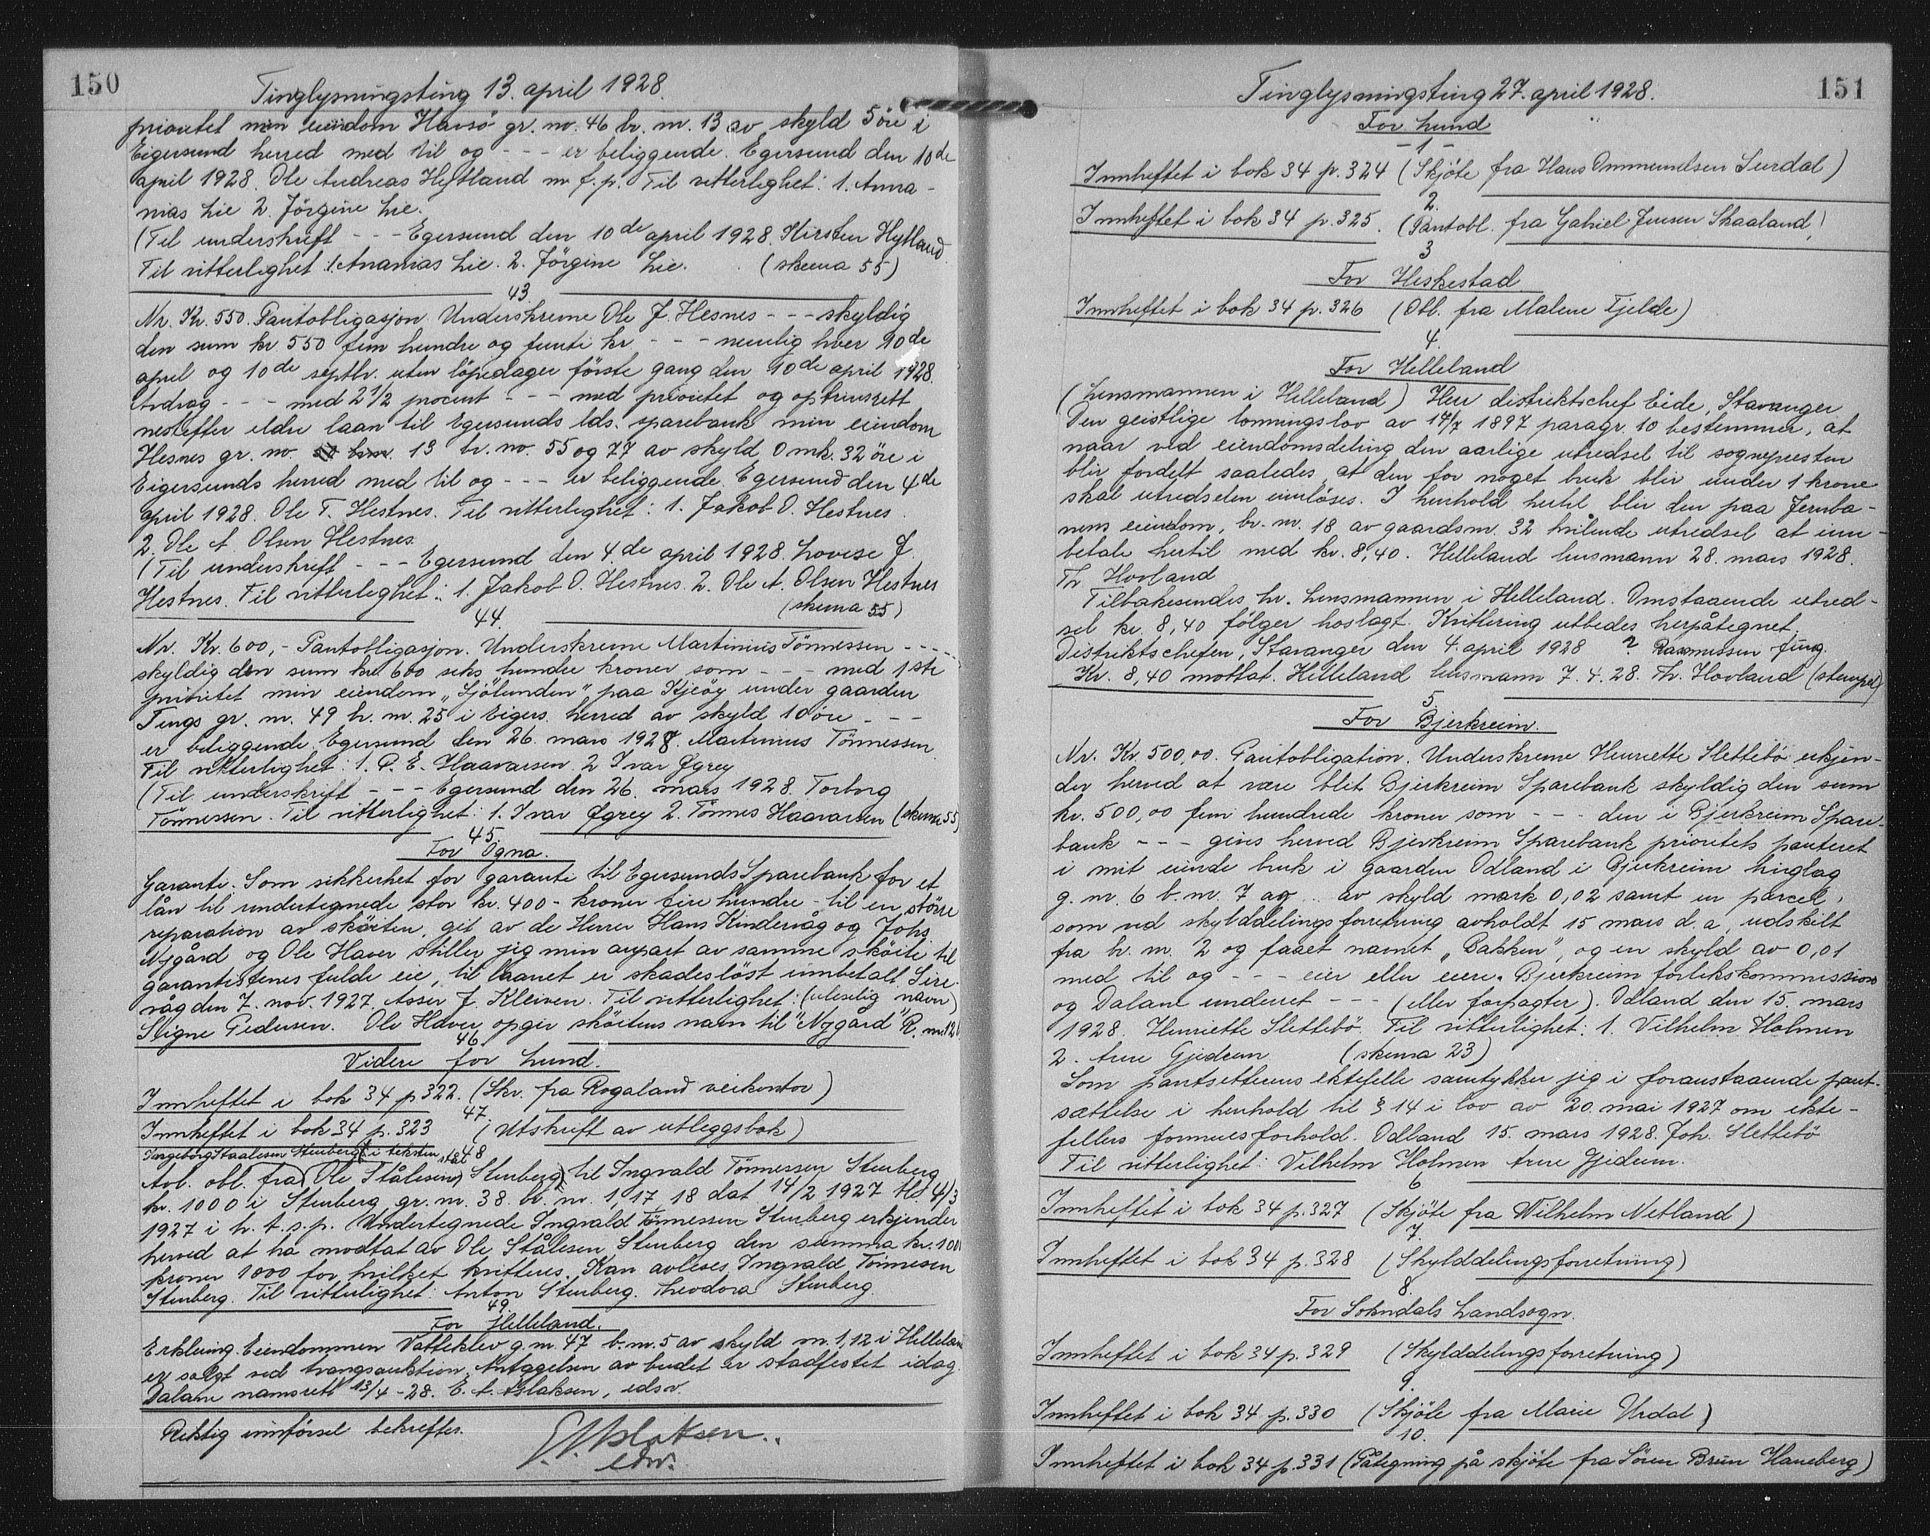 150
Tinglysningsting 13. april 1928.
prioritet min eiendom Havsö gr. no. 46 br. nr. 13 av skyld 5 öre i
Eigersund herred med til og - - - er beliggende. Egersund den 10de
april 1928. Ole Andreas Hetland m. f. p. Til vitterlighet: 1. Anna-
nias Lie 2. Jörgine Lie.
(Til underskrift - - - Egersund den 10de april 1928 Kirsten Hytland
Til vitterlighet: 1. Ananias Lie. 2. Jörgine Lie. (skema 55)
43
Nr. Kr. 550. Pantobligasjon. Underskrevne Ole J. Hesnes - - - skyldig
den sum kr 550 fem hundre og femti kr - - - nemlig hver 10de
april og 10de septbr. uten löpedager förste gang den 10de april 1928.
Avdrag - - - med 2 1/2 procent - - - med prioritet og optrinsrett
nest efter eldre laan til Egersunds lds. sparebank min eiendom
Hesnes gr. no. 13 br. no. 55 og 77 av skyld 0 mk. 32 öre i
Eigersunds herred med til og - - - er beliggende. Egersund den 4de
april 1928. Ole T. Hestnes. Til vitterlighet: 1. Jakob O. Hestnes.
2. Ole A. Olsen Hestnes.
(Til underskrift - - - Egersund den 4.de april 1928 Lovise J.
Hestnes. Til vitterlighet: 1. Jakob O. Hestnes. 2. Ole A. Olsen Hestnes
(skema 55)
44.
Nr. Kr. 600,- Pantobligasjon. Underskrevne Martinius Tönnessen - - - -
skyldig den sum kr 600 seks hundre kroner som - - - med 1ste
prioritet min eiendom "Sjölunden" paa Kjeöy under gaarden
Tengs gr. nr. 49 br. nr. 25 i Eigers. herred av skyld 10 öre - - -
er beliggende. Egersund den 26. mars 1928. Martinius Tönnessen
Til vitterlighet: 1. P. E. Haavarsen 2 Ivar Øgrey
(Til underskrift - - - Egersund den 26. mars 1928. Torborg
Tönnessen. Til vitterlighet: 1. Ivar Øgrey 2. Tönnes Haavarsen (skema 55)
45.
For Ogna.
Garanti. Som sikkerhet for garanti til Egersunds Sparebank for et
lån til undertegnede stor kr. 400 - kroner fire hundre - til en större
reparation av sköiten, git av de Herrer Hans Kindervåg og Johs.
Nygård og Ole Haver stiller jeg min anpart av samme sköite til
garantistenes fulde eie, til laanet er skadeslöst innbetalt. Sire-
våg den 7. nov. 1927. Asser J. Kleiven. Til vitterlighet: (uleselig navn)
Signe Pedersen. Ole Haver opgir sköitens navn til "Nygård" R. nr. 12
46
Videre for Lund.
Innheftet i bok 34 p 322. (Skr. fra Rogaland veikontor)
47.
Innheftet i bok 34 p. 323 (Utskrift av utleggsbok)
48
Ingeborg Staalesen Stenberg (i teksten står
Avl. obl. fra (Ole Stålesen Stenberg) til Ingvald Tönnessen Stenberg
kr. 1000 i Stenberg gr. nr. 38 br. nr. 1, 17 18 dat. 14/2 1927 tl. 4/3
1927 i h. t. s. p. Undertegnede Ingvald Tönnessen Stenberg erkjender
herved at ha modtat av Ole Stålesen Stenberg den summa kr. 1000
kroner 1000 for hvilket kvitteres. Kan avleses. Ingvald Tönnesen
Stenberg. Til vitterlighet: Anton Stenberg. Theodora Stenberg.
49.
For Helleland.
Erklering. Eiendommen Vatteklev g. nr. 47 b. nr. 5 av skyld m. 1,12 i Helleland
er solgt ved tvangsauktion. Antagelsen av budet er stadfestet idag.
Dalane namsrett 13/4 - 28. E. A. Aslaksen, edsv.
Riktig innförsel bekreftes.
E. A. Aslaksen.
edsv.
151
Tinglysningsting 27. april 1928.
For Lund
- 1 -
Innheftet i bok 34 p. 324 (Skjöte fra Hans Ommundsen Surdal)
2.
Innheftet i bok 34 p. 325. (Pantobl. fra Gabriel Jensen Skaaland)
3
For Heskestad
Innheftet i bok 34 p. 326 (Obl. fra Malene Fjelde)
4.
For Helleland
(Lensmannen i Helleland) Herr distriktschef Eide, Stavanger.
Den geistlige lonningslov av 14/7 1897 paragr. 10 bestemmer, at
naar ved eiendomsdeling den aarlige utredsel til sognepresten
blir fordelt saaledes, at den for noget bruk blir under 1 krone
skal utredselen innlöses. I henhold hertil blir den paa Jernba-
nens eiendom, br. nr. 18 av gaardsnr. 32 hvilende utredsel at inn-
betale hertil med kr. 8,40. Helleland lensmann 28. mars 1928.
Th. Hovland
Tilbakesendes hr. Lensmannen i Helleland. Omstaaende utred-
sel kr. 8,40 fölger hoslagt. Kvittering utbedes herpåtegnet.
Distriktschefen, Stavanger den 4 april 1928 ? Rasmussen fung.
Kr. 8,40 mottat. Helleland lensmann 7. 4. 28. Th. Hovland (stempel)
5
For Bjerkreim.
Nr. Kr. 500,00. Pantobligation. Underskrevne Henriette Slettebö erkjen-
der herved at være blit Bjerkreim Sparebank skyldig den sum
kr. 500,00 fem hundrede kroner som - - - den i Bjerkreim Spare-
bank - - - gives herved Bjerkreim Sparebank prioritets panteret
i mit eiende bruk i gaarden Odland i Bjerkreim tinglag
g. nr. 6 b. nr. 7 ag ... av skyld mark 0,02 samt en parcel,
som ved skylddelingsforretning avholdt 15 mars d. a. utskilt
fra b. nr. 2 og faaet navnet "Bakken", og en skyld av 0,01
med til og - - - eier eller eiere. Bjerkreim forlikskommission
og Dalane underret - - - (eller forpagter). Odland den 15. mars
1928. Henriette Slettebö. Til vitterlighet: 1. Vilhelm Holmen
2. Arne Gjedrem (skema 23)
Som pantsetterens ektefelle samtykker jeg i foranstaaende pant-
sættelse i henhold til § 14 i lov av 20. mai 1927 om ekte-
fellers formuesforhold. Odland 15. mars 1928. Joh. Slettebö
Til vitterlighet: Vilhelm Holmen Arne Gjedrem.
6
Innheftet i bok 34 p. 327 (Skjöte fra Wilhelm Netland)
7.
Innheftet i bok 34 p. 328 (Skylddelingsforretning)
8.
For Sokndals Landsogn.
Innheftet i bok 34 p. 329 (Skylddelingsforretning)
9.
Innheftet i bok 34 p. 330 (Skjöte fra Marie Urdal)
10.
Innheftet i bok 34 p. 331 (Påtegning på skjöte fra Sören Bruun Haneberg)